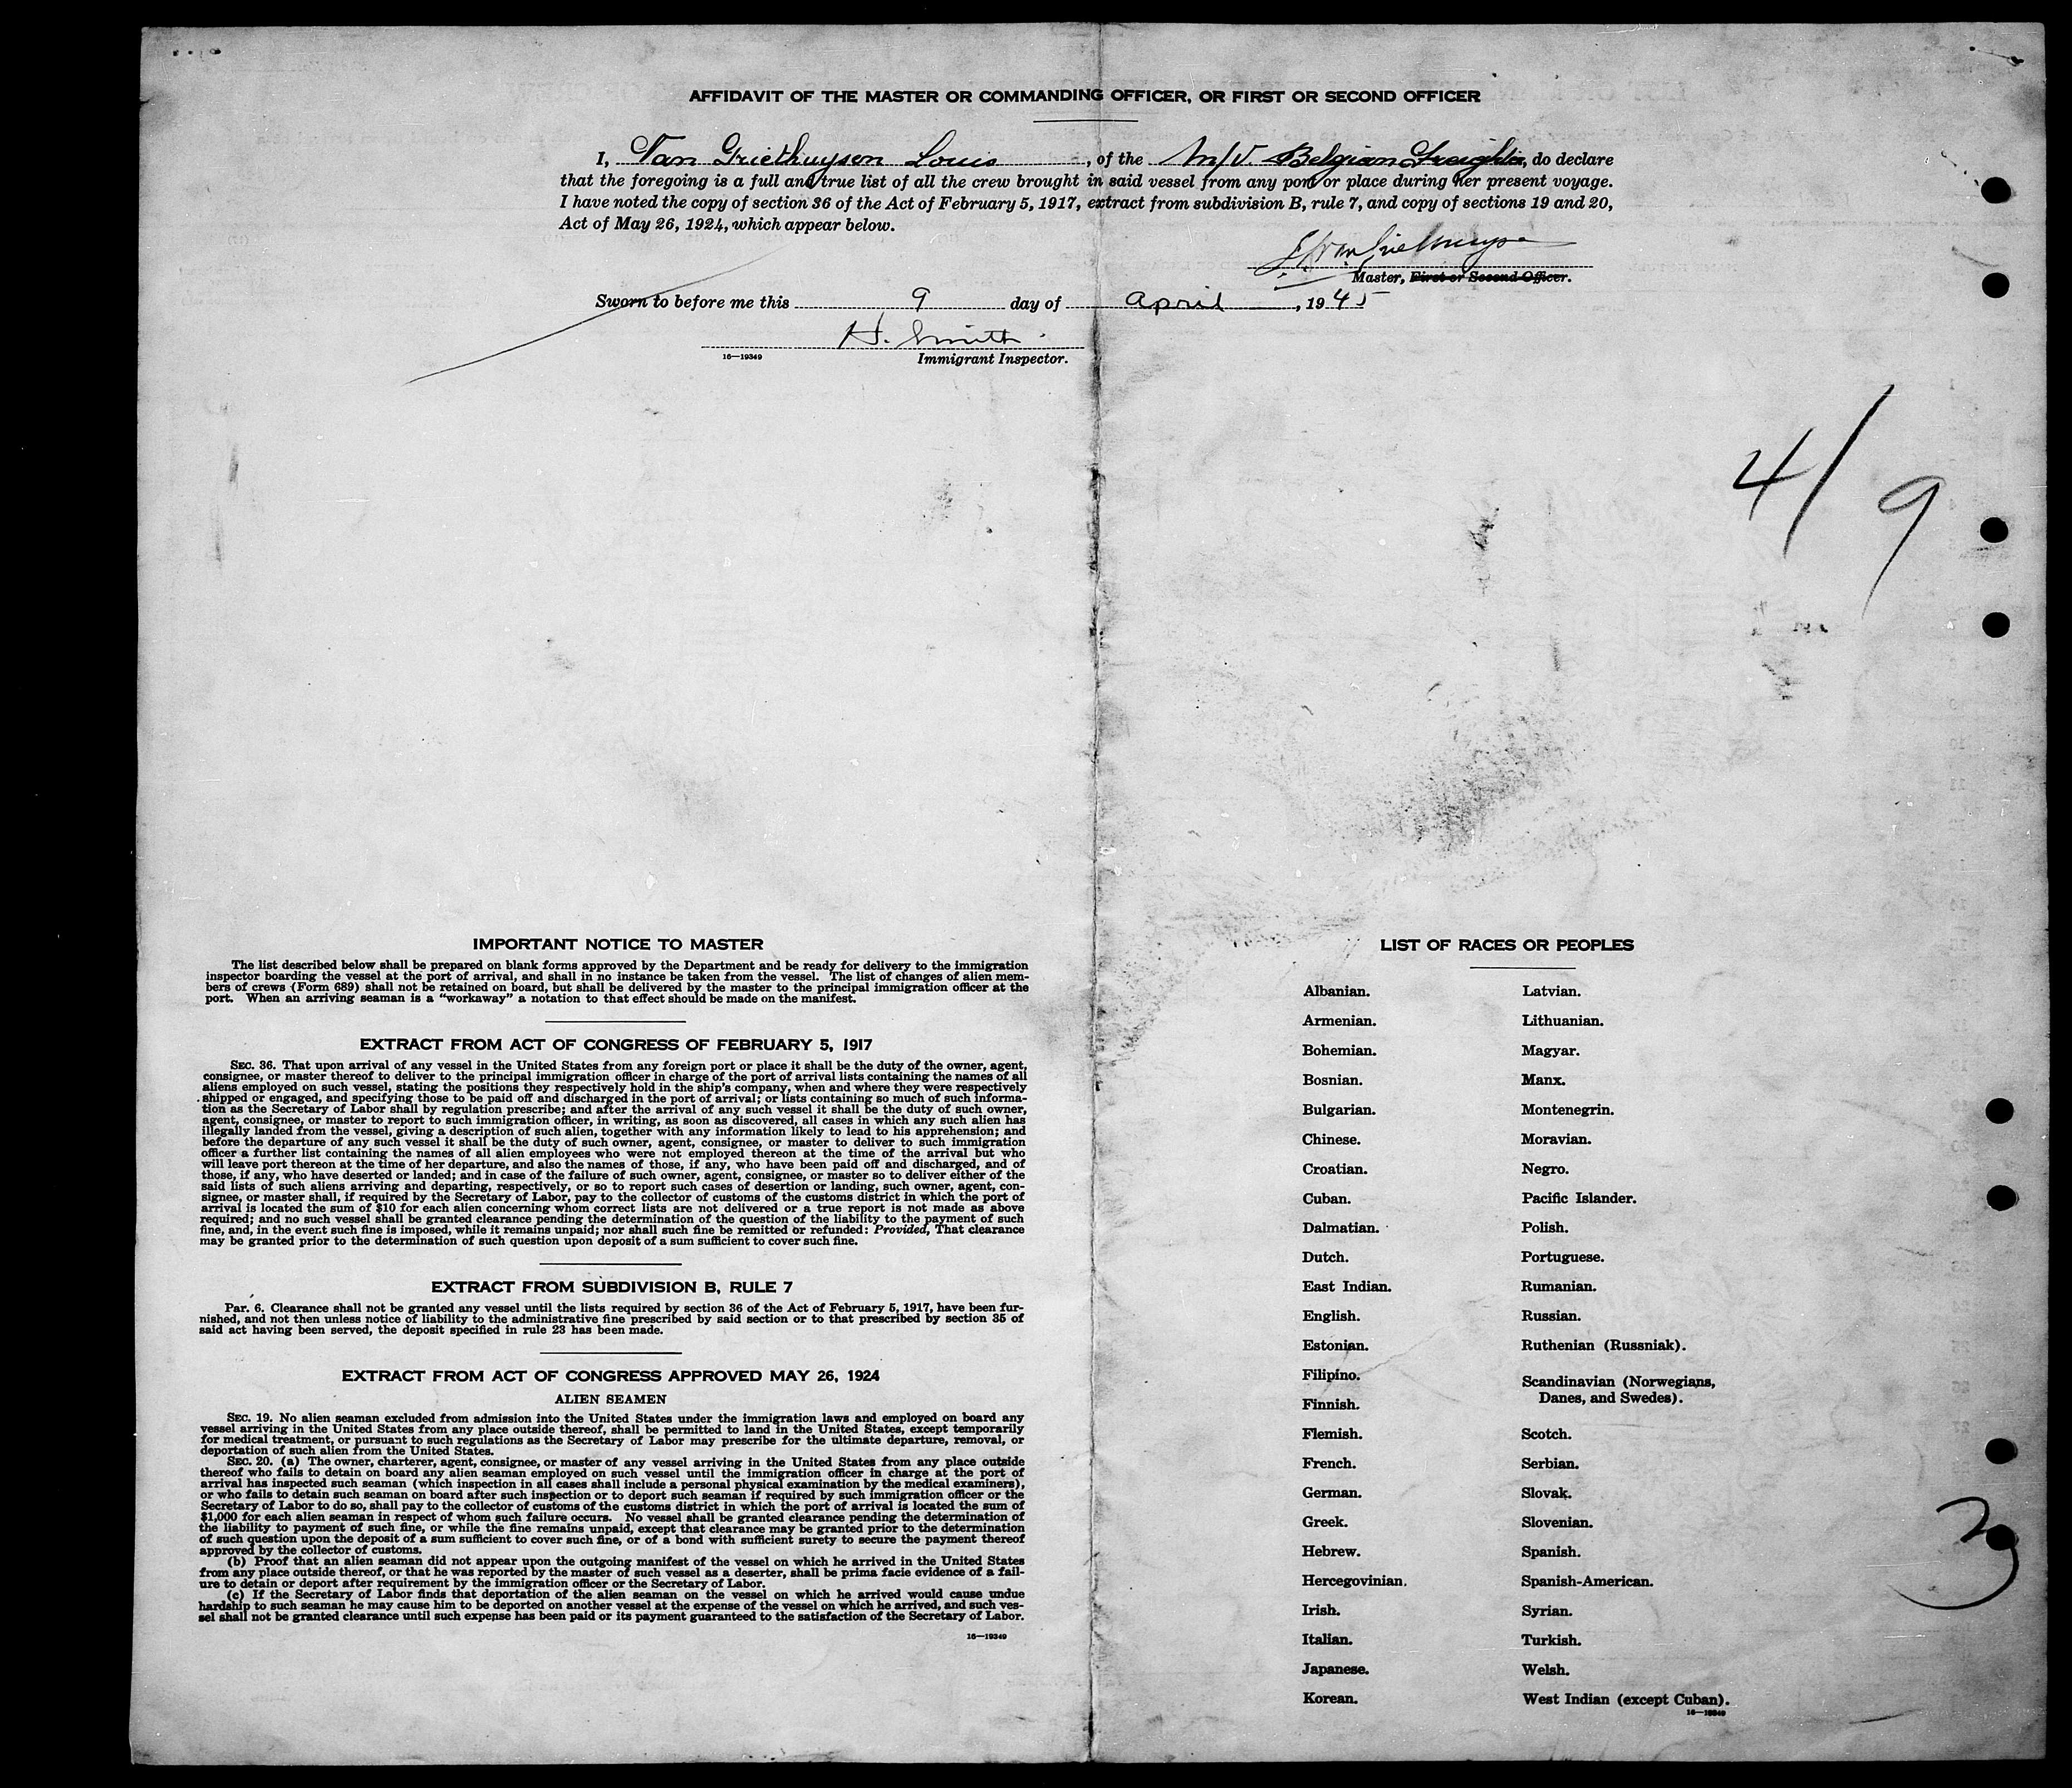 AFFIDAVIT OF THE MASTER OR COMMANDING OFFICER, OR FIRST OR SECOND OFFICER
I, Van Griethuysen Louis, of the M/V. Belgian Freighter, do declare
that the foregoing is a full and true list of all the crew brought in said vessel from any port or place during her present voyage.
I have noted the copy of section 36 of the Act of February 5, 1917, extract from subdivision B, rule 7, and copy of sections 19 and 20,
Act of May 26, 1924, which appear below.
Master, First or Second Officer.
Sworn to before me this 9 day of April, 1945
H. Smith
16—19349 Immigrant Inspector.
4/9
IMPORTANT NOTICE TO MASTER
The list described below shall be prepared on blank forms approved by the Department and be ready for delivery to the immigration
inspector boarding the vessel at the port of arrival, and shall in no instance be taken from the vessel. The list of changes of alien mem-
bers of crews (Form 689) shall not be retained on board, but shall be delivered by the master to the principal immigration officer at the
port. When an arriving seaman is a "workaway" a notation to that effect should be made on the manifest.
EXTRACT FROM ACT OF CONGRESS OF FEBRUARY 5, 1917
SEC. 36. That upon arrival of any vessel in the United States from any foreign port or place it shall be the duty of the owner, agent,
consignee, or master thereof to deliver to the principal immigration officer in charge of the port of arrival lists containing the names of all
aliens employed on such vessel, stating the positions they respectively hold in the ship's company, when and where they were respectively
shipped or engaged, and specifying those to be paid off and discharged in the port of arrival; or lists containing so much of such informa-
tion as the Secretary of Labor shall by regulation prescribe; and after the arrival of any such vessel it shall be the duty of such owner,
agent, consignee, or master to report to such immigration officer, in writing, as soon as discovered, all cases in which any such alien has
illegally landed from the vessel, giving a description of such alien, together with any information likely to lead to his apprehension; and
before the departure of any such vessel it shall be the duty of such owner, agent, consignee, or master to deliver to such immigration
officer a further list containing the names of all alien employees who were not employed thereon at the time of the arrival but who
will leave port thereon at the time of her departure, and also the names of those, if any, who have been paid off and discharged, and of
those, if any, who have deserted or landed; and in case of the failure of such owner, agent, consignee, or master so to deliver either of the
said lists of such aliens arriving and departing, respectively, or so to report such cases of desertion or landing, such owner, agent, con-
signee, or master shall, if required by the Secretary of Labor, pay to the collector of customs of the customs district in which the port of
arrival is located the sum of $10 for each alien concerning whom correct lists are not delivered or a true report is not made as above
required; and no such vessel shall be granted clearance pending the determination of the question of the liability to the payment of such
fine, and, in the event such fine is imposed, while it remains unpaid; nor shall such fine be remitted or refunded: Provided, That clearance
may be granted prior to the determination of such question upon deposit of a sum sufficient to cover such fine.
EXTRACT FROM SUBDIVISION B, RULE 7
Par. 6. Clearance shall not be granted any vessel until the lists required by section 36 of the Act of February 5, 1917, have been fur-
nished, and not then unless notice of liability to the administrative fine prescribed by said section or to that prescribed by section 35 of
said act having been served, the deposit specified in rule 23 has been made.
EXTRACT FROM ACT OF CONGRESS APPROVED MAY 26, 1924
ALIEN SEAMEN
SEC. 19. No alien seaman excluded from admission into the United States under the immigration laws and employed on board any
vessel arriving in the United States from any place outside thereof, shall be permitted to land in the United States, except temporarily
for medical treatment, or pursuant to such regulations as the Secretary of Labor may prescribe for the ultimate departure, removal, or
deportation of such alien from the United States.
SEC. 20. (a) The owner, charterer, agent, consignee, or master of any vessel arriving in the United States from any place outside
thereof who fails to detain on board any alien seaman employed on such vessel until the immigration officer in charge at the port of
arrival has inspected such seaman (which inspection in all cases shall include a personal physical examination by the medical examiners),
or who fails to detain such seaman on board after such inspection or to deport such seaman if required by such immigration officer or the
Secretary of Labor to do so, shall pay to the collector of customs of the customs district in which the port of arrival is located the sum of
$1,000 for each alien seaman in respect of whom such failure occurs. No vessel shall be granted clearance pending the determination of
the liability to payment of such fine, or while the fine remains unpaid, except that clearance may be granted prior to the determination
of such question upon the deposit of a sum sufficient to cover such fine, or of a bond with sufficient surety to secure the payment thereof
approved by the collector of customs.
(b) Proof that an alien seaman did not appear upon the outgoing manifest of the vessel on which he arrived in the United States
from any place outside thereof, or that he was reported by the master of such vessel as a deserter, shall be prima facie evidence of a fail-
ure to detain or deport after requirement by the immigration officer or the Secretary of Labor.
(c) If the Secretary of Labor finds that deportation of the alien seaman on the vessel on which he arrived would cause undue
hardship to such seaman he may cause him to be deported on another vessel at the expense of the vessel on which he arrived, and such ves-
sel shall not be granted clearance until such expense has been paid or its payment guaranteed to the satisfaction of the Secretary of Labor.
16—19349
LIST OF RACES OR PEOPLES
Albanian.
Armenian.
Bohemian.
Bosnian.
Bulgarian.
Chinese.
Croatian.
Cuban.
Dalmatian.
Dutch.
East Indian.
English.
Estonian.
Filipino.
Finnish.
Flemish.
French.
German.
Greek.
Hebrew.
Hercegovinian.
Irish.
Italian.
Japanese.
Korean.
Latvian.
Lithuanian.
Magyar.
Manx.
Montenegrin.
Moravian.
Negro.
Pacific Islander.
Polish.
Portuguese.
Rumanian.
Russian.
Ruthenian (Russniak).
Scandinavian (Norwegians,
Danes, and Swedes).
Scotch.
Serbian.
Slovak.
Slovenian.
Spanish.
Spanish-American.
Syrian.
Turkish.
Welsh.
West Indian (except Cuban).
16—19349
3